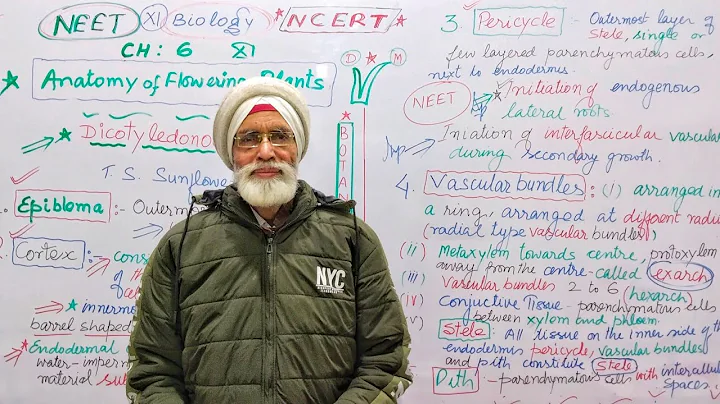 NEET XI Biology * NCERT *
CH: 6 XI
* Anatomy of Flowering Plants
D * M
* Dicotyledono
T. S. Sunflowe
Epiblema :- Outerm
Cortex :- cons
of th
of cel
* innermo
barrel shaped
* Endodermal
water- imperm
material su
* BOTAN
NYC
3. Pericycle :- Outermost layer of
Stele, single or
few layered parenchymatous cells,
next to endodermis.
NEET * Initiation of endogenous
lateral roots
Imp Iniation of interfascicular vascular
during secondary growth.
4. Vascular bundles : (i) arranged in
a ring, arranged at different radii
(radial type vascular bundles)
(ii) Metaxylem towards centre, protoxylem
away from the centre - called exarch
(iii) Vascular bundles 2 to 6 (hexarch)
(iv) Conjuctive Tissue - parenchymatous cells
between xylem and phloem.
(v) Stele : All tissue on the inner side of the
endodermis pericycle, vascular bundles
and pith constitute Stele
Pith - parenchymatous cells with intercellul
spaces.